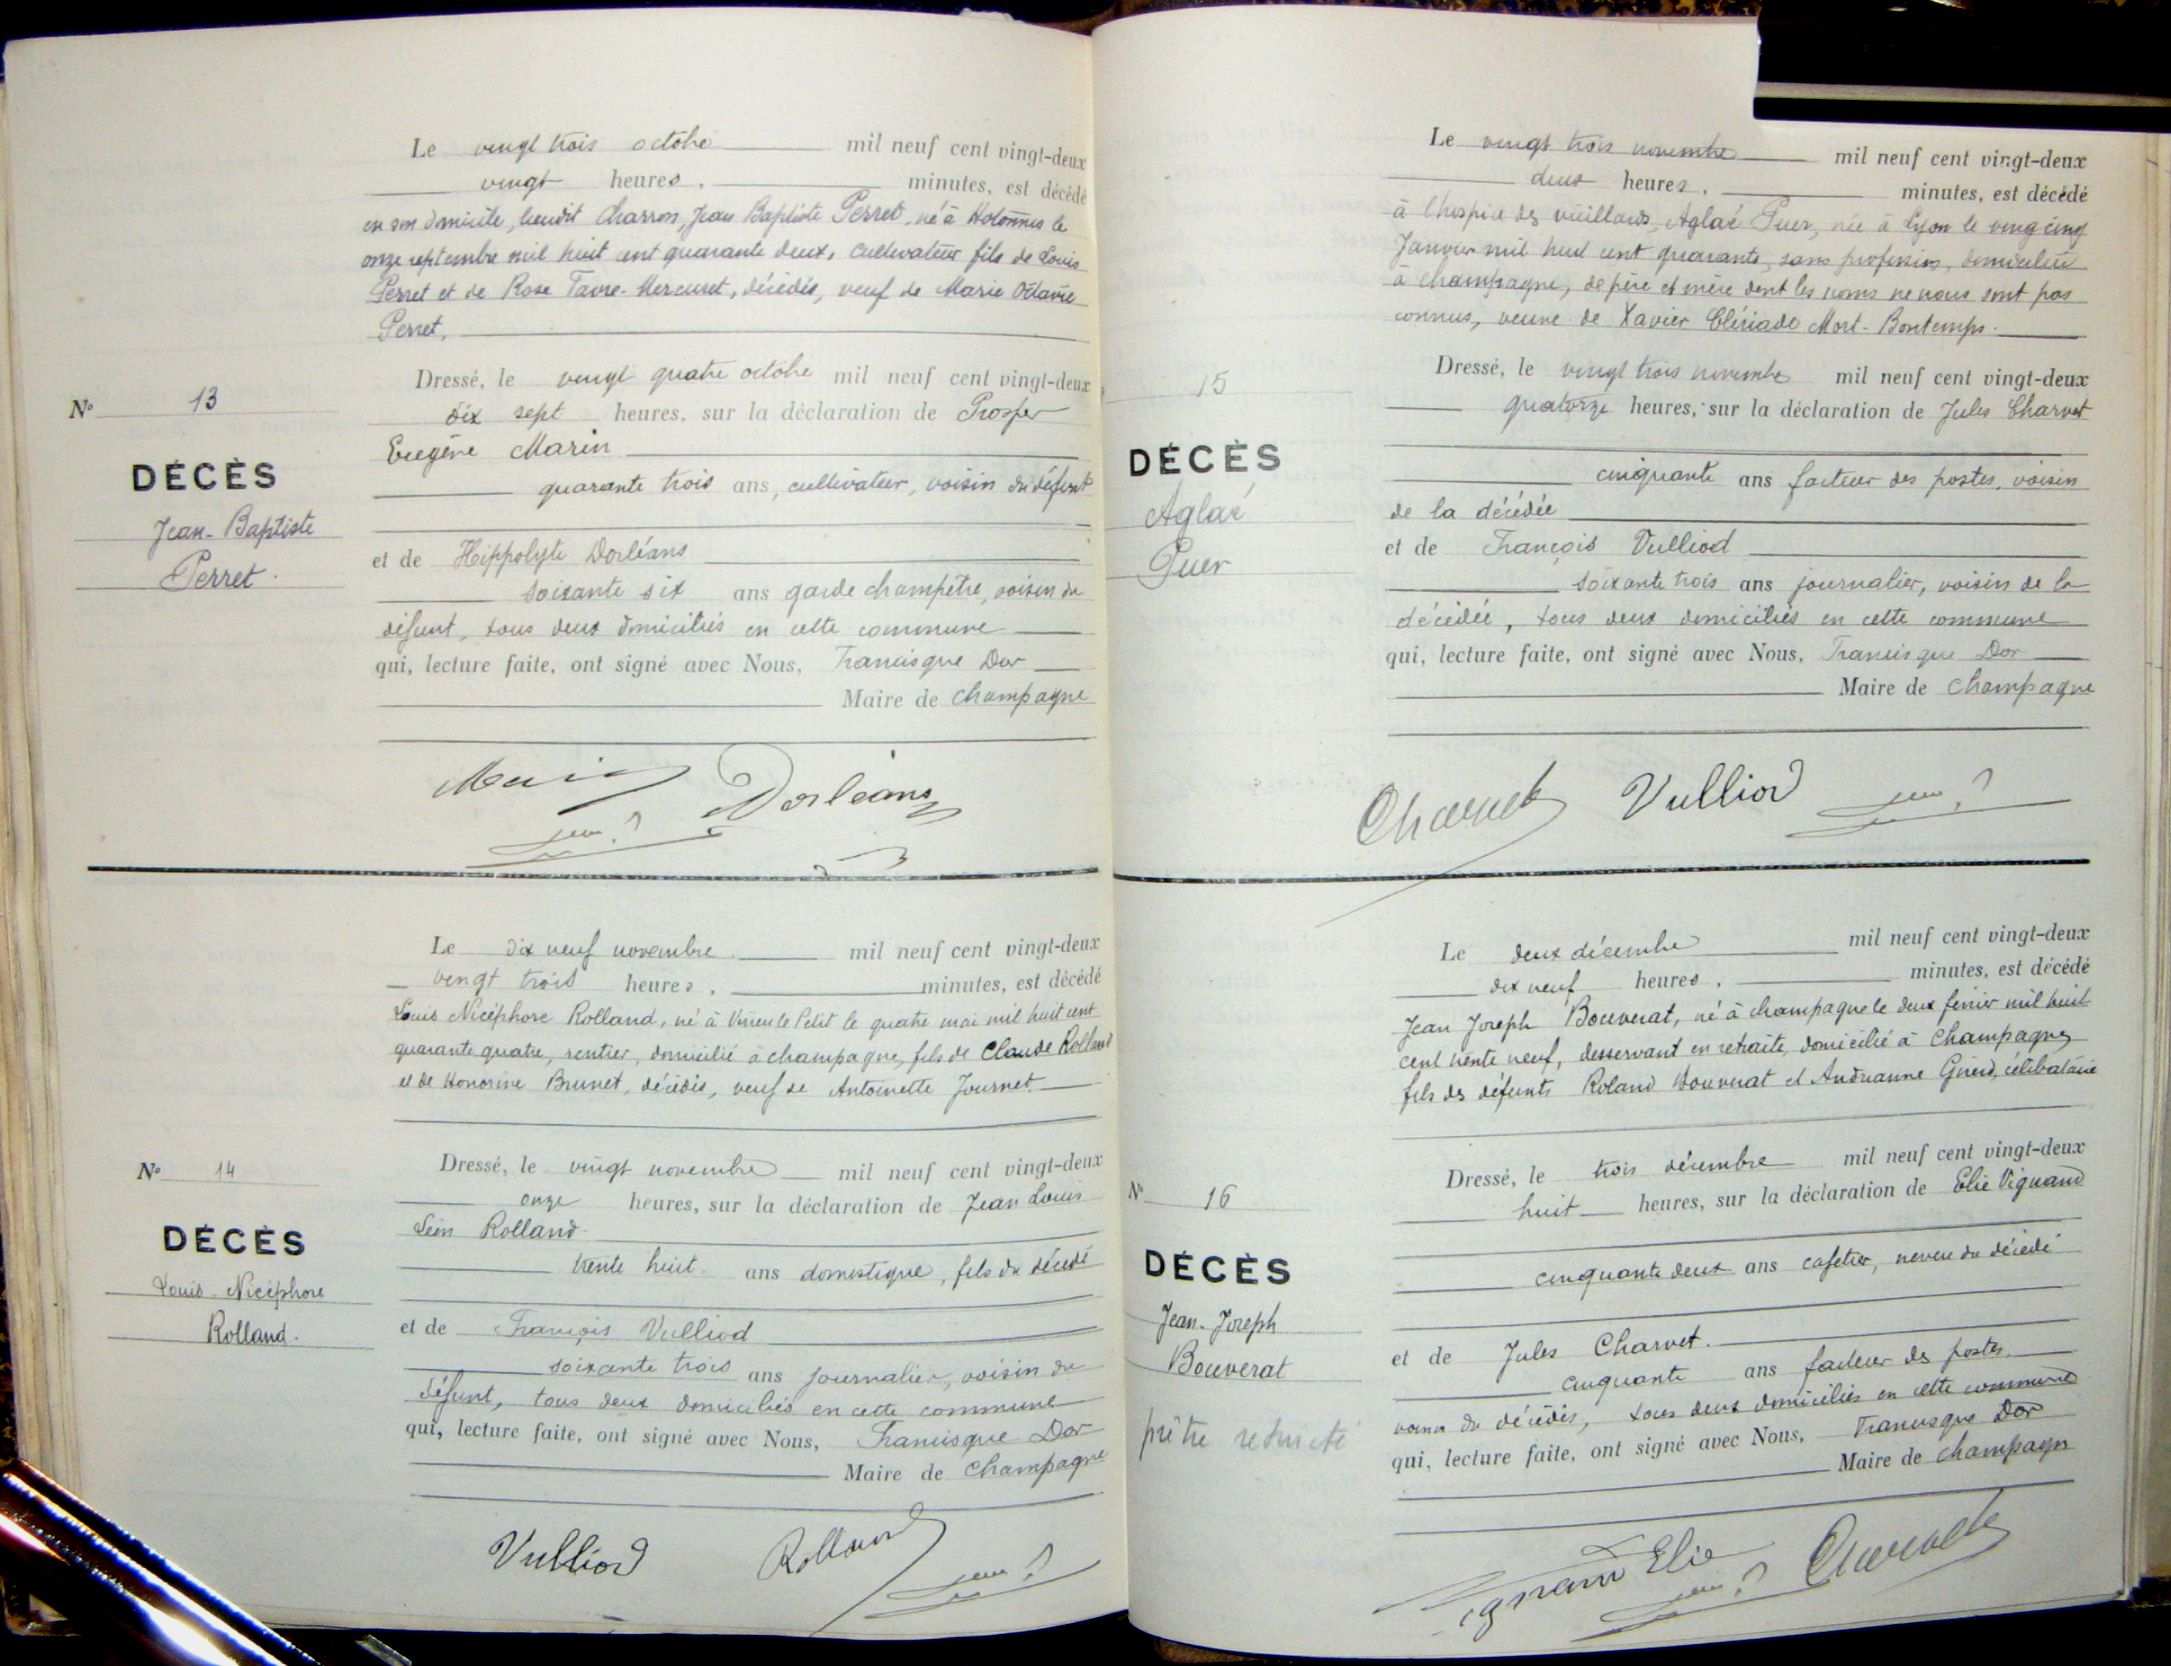 Le vingt trois octobre mil neuf cent vingt-deux
vingt heures, minutes, est décédé
en son domicile, lieudit Charron, Jean Baptiste Perret, né à Hotonnes le
onze septembre mil huit cent quarante deux, cultivateur fils de Louis
Perret et de Rose Favre-Mercuret, décédés, veuf de Marie Octavie
Perret.
Dressé, le vingt quatre octobre mil neuf cent vingt-deux
dix sept heures, sur la déclaration de Prosper
Eugène Marin
quarante trois ans, cultivateur, voisin du défunt
et de Hippolyte Dorléans
soixante six ans garde champêtre, voisin du
défunt, tous deux domiciliés en cette commune
qui, lecture faite, ont signé avec Nous, Francisque Dor
Maire de Champagne
N° 13
DÉCÈS
Jean-Baptiste
Perret.
Marin Dorléans
Le dix neuf novembre mil neuf cent vingt-deux
vingt trois heures, minutes, est décédé
Louis Nicéphore Rolland, né à Virieu le Petit le quatre mai mil huit cent
quarante quatre, rentier, domicilié à Champagne, fils de Claude Rolland
et de Honorine Brunet, décédés, veuf de Antoinette Journet.
Dressé, le vingt novembre mil neuf cent vingt-deux
onze heures, sur la déclaration de Jean Louis
Léon Rolland
trente huit ans domestique, fils du décédé
et de François Vulliod
soixante trois ans journalier, voisin du
défunt, tous deux domiciliés en cette commune
qui, lecture faite, ont signé avec Nous, Francisque Dor
Maire de Champagne
N° 14
DÉCÈS
Louis-Nicéphore
Rolland.
Vulliod Rolland
Le vingt trois novembre mil neuf cent vingt-deux
deux heures, minutes, est décédé
à l'hospice des vieillards, Aglaé Puer, née à Lyon le vingt cinq
Janvier mil huit cent quarante, sans profession, domiciliée
à Champagne, de père et mère dont les noms ne nous sont pas
connus, veuve de Xavier Clériade Mort-Bontemps.
Dressé, le vingt trois novembre mil neuf cent vingt-deux
quatorze heures, sur la déclaration de Jules Charvet
cinquante ans facteur des postes, voisin
de la décédée
et de François Vulliod
soixante trois ans journalier, voisin de la
décédée, tous deux domiciliés en cette commune
qui, lecture faite, ont signé avec Nous, Francisque Dor
Maire de Champagne
15
DÉCÈS
Aglaé
Puer
Charvet Vulliod
Le deux décembre mil neuf cent vingt-deux
dix neuf heures, minutes, est décédé
Jean Joseph Bouverat, né à Champagne le deux février mil huit
cent trente neuf, desservant en retraite, domicilié à Champagne,
fils des défunts Roland Bouverat et Andréanne célibataire
Dressé, le trois décembre mil neuf cent vingt-deux
huit heures, sur la déclaration de Elie Vignand
cinquante deux ans cafetier, neveu du décédé
et de Jules Charvet.
cinquante ans facteur des postes.
voisin du décédés, tous deux domiciliés en cette commune
qui, lecture faite, ont signé avec Nous, Francisque Dor
Maire de Champagne
N° 16
DÉCÈS
Jean-Joseph
Bouverat
prêtre retraité
Vignand Elie Charvet